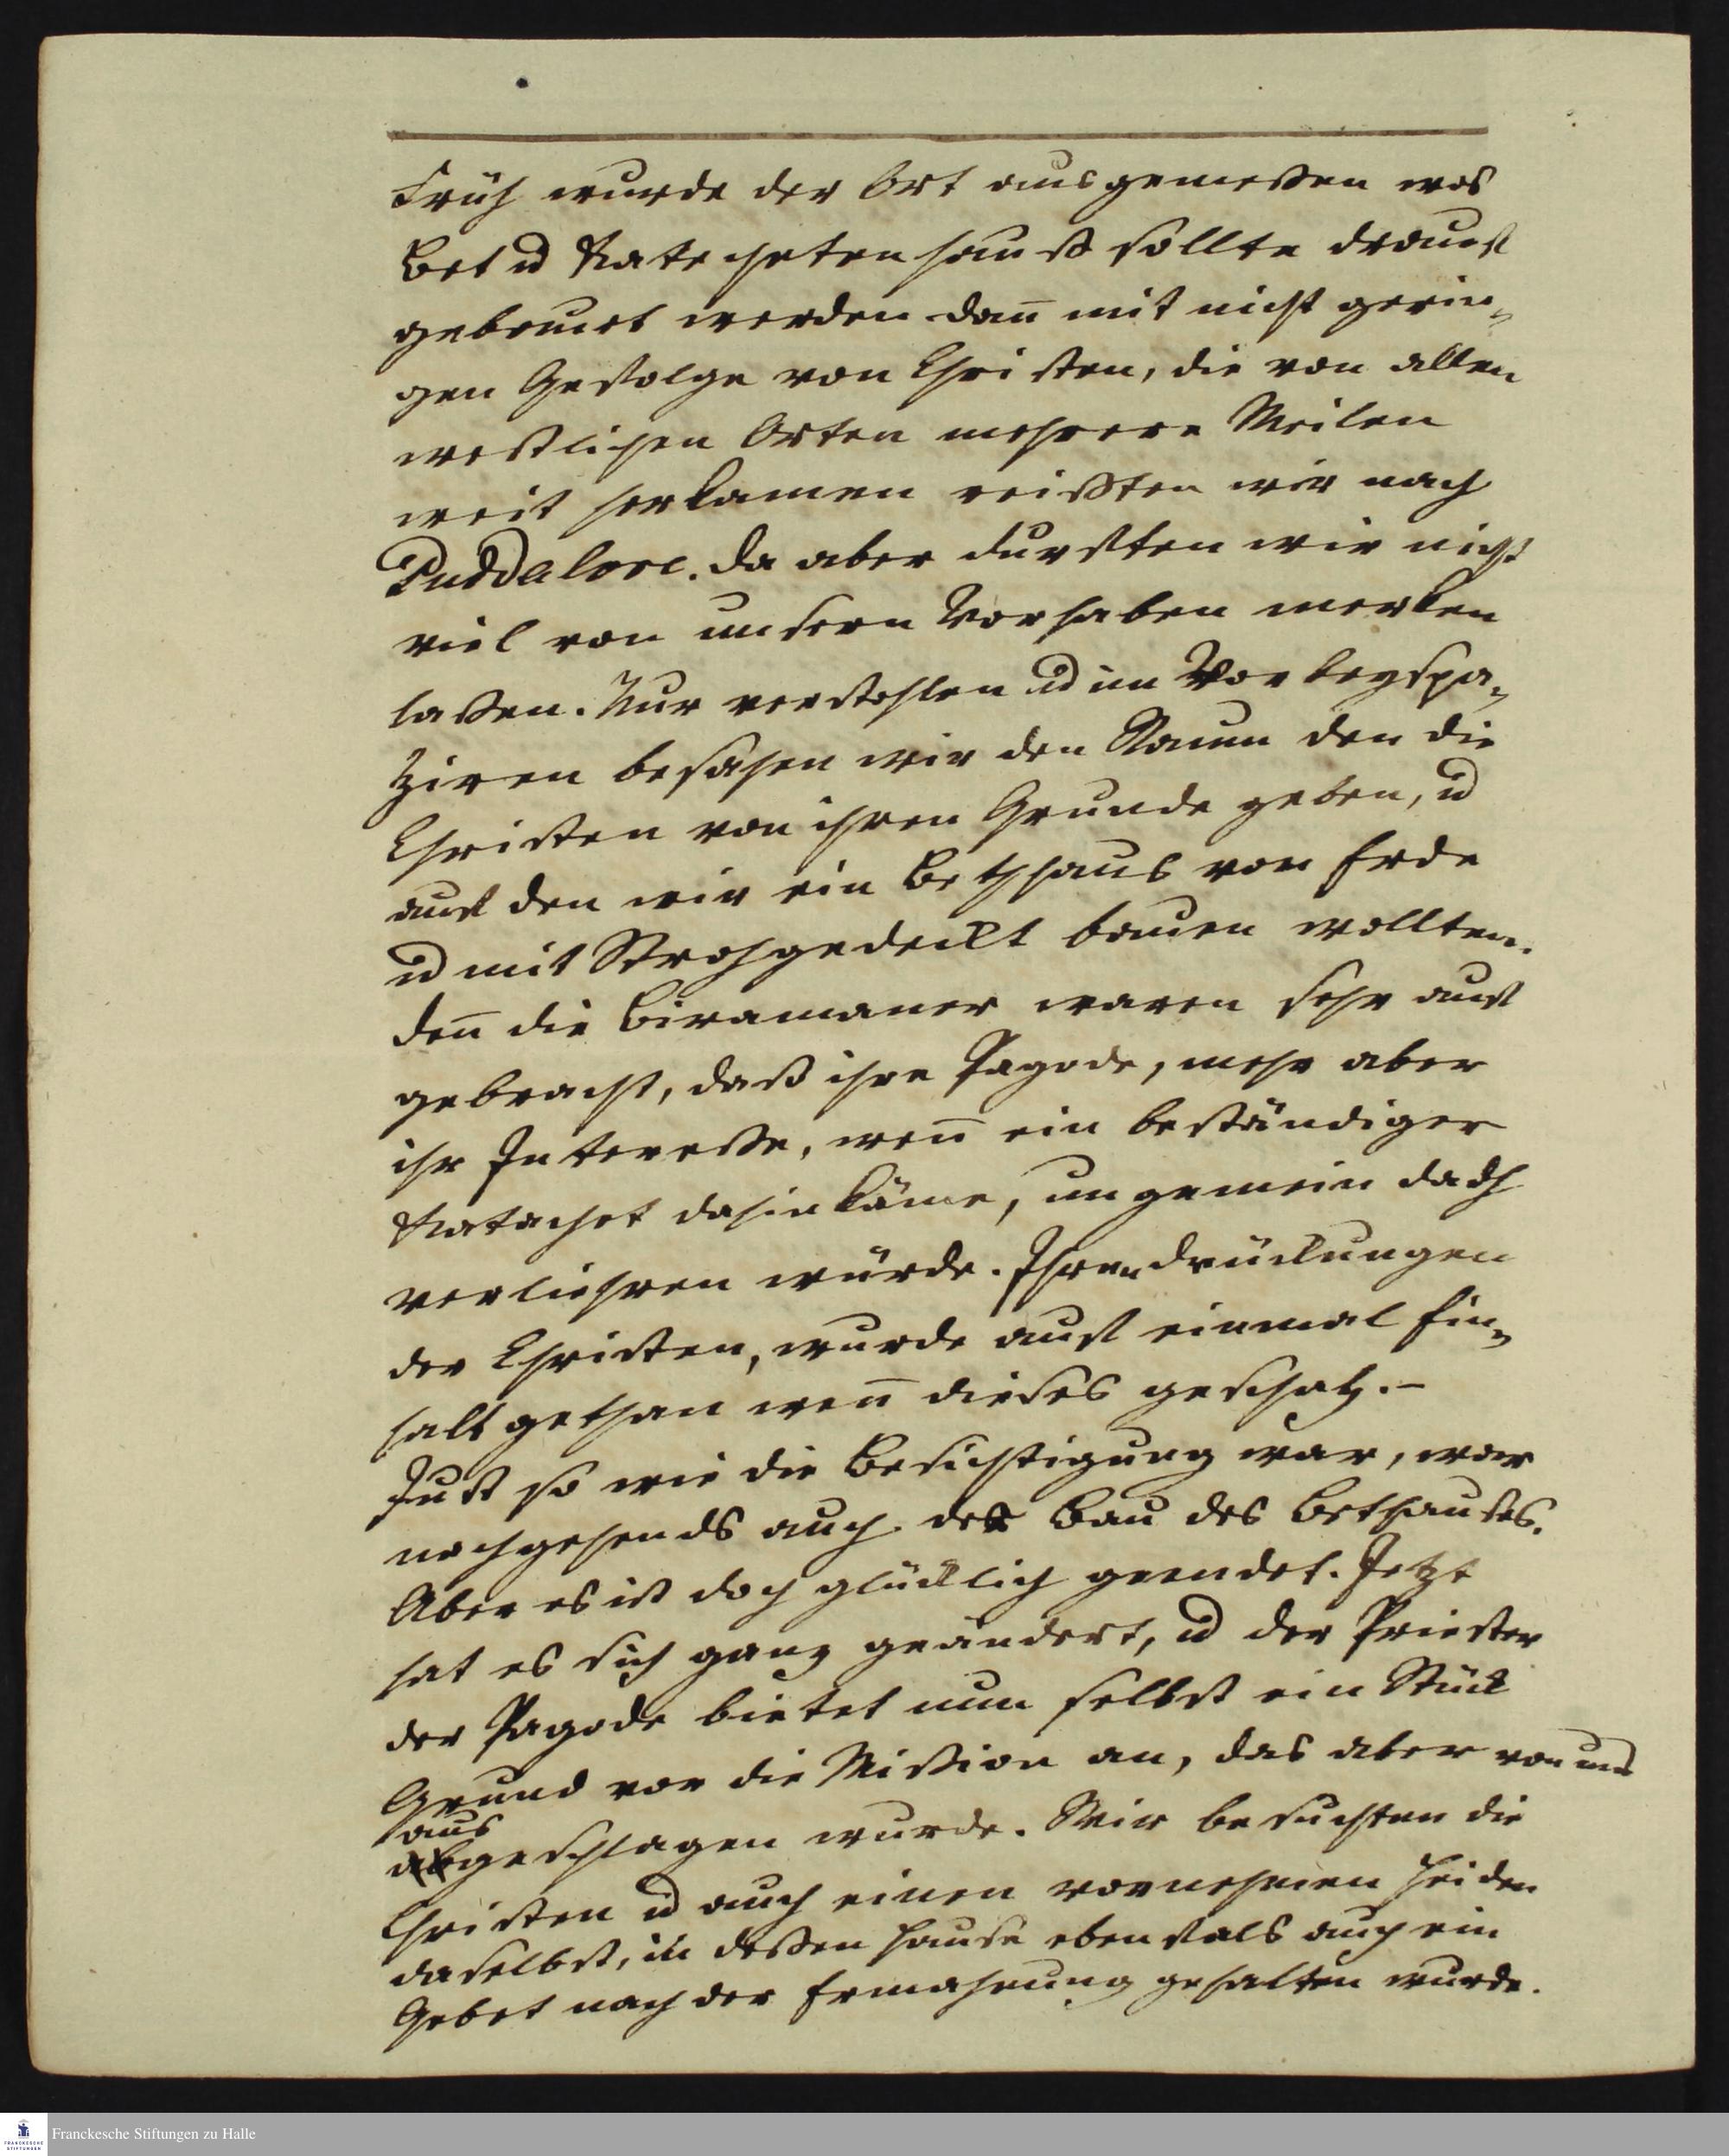 Früh wurde der Ort ausgemeßen wo das
Bet u Katechetenhauß sollte drauf
gebauet werden dañ mit nicht gerin„
gen Gefolge von Christen, die von allen
westlichen Orten mehrere Meilen
weit herkamen reißten wir nach
Puddalore. Da aber durften wir nicht
viel von unsern Vorhaben merken
laßen. Nur verstohlen u im Vorbeyspa„
ziren besahen wir den Raum den die
Christen von ihren Grunde geben, u
auf den wir ein Bethhaus von Erde
u mit Stroh gedeckt bauen wollten.
Deñ die Biramaner waren sehr auf
gebracht, daß ihre Pagode, mehr aber
ihr Intereße, weñ ein beständiger
Katechet dahin käme, ungemein dadh
verliehren würde. Ihren drückungen
der Christen, wurde auf einmal Ein„
halt gethan weñ dieses geschah. –
Just so wie die Besichtigung war, war
nachgehends auch der Bau des Bethauses.
Aber es ist doch glücklich geendet. Jetzt
hat es sich ganz geändert, u der Priester
der Pagode bietet nun selbst ein Stück
Grund vor die Mißion an, das aber von uns
aus
abgeschlagen wurde. Wir besuchten die
Christen u auch einen vornehmen Heiden
daselbst, in deßen Hause ebenfals auch ein
Gebet nach der Ermahnung gehalten wurde.
Franckesche Stiftungen zu Halle
FRANCKESCHE
STIFTUNGEN